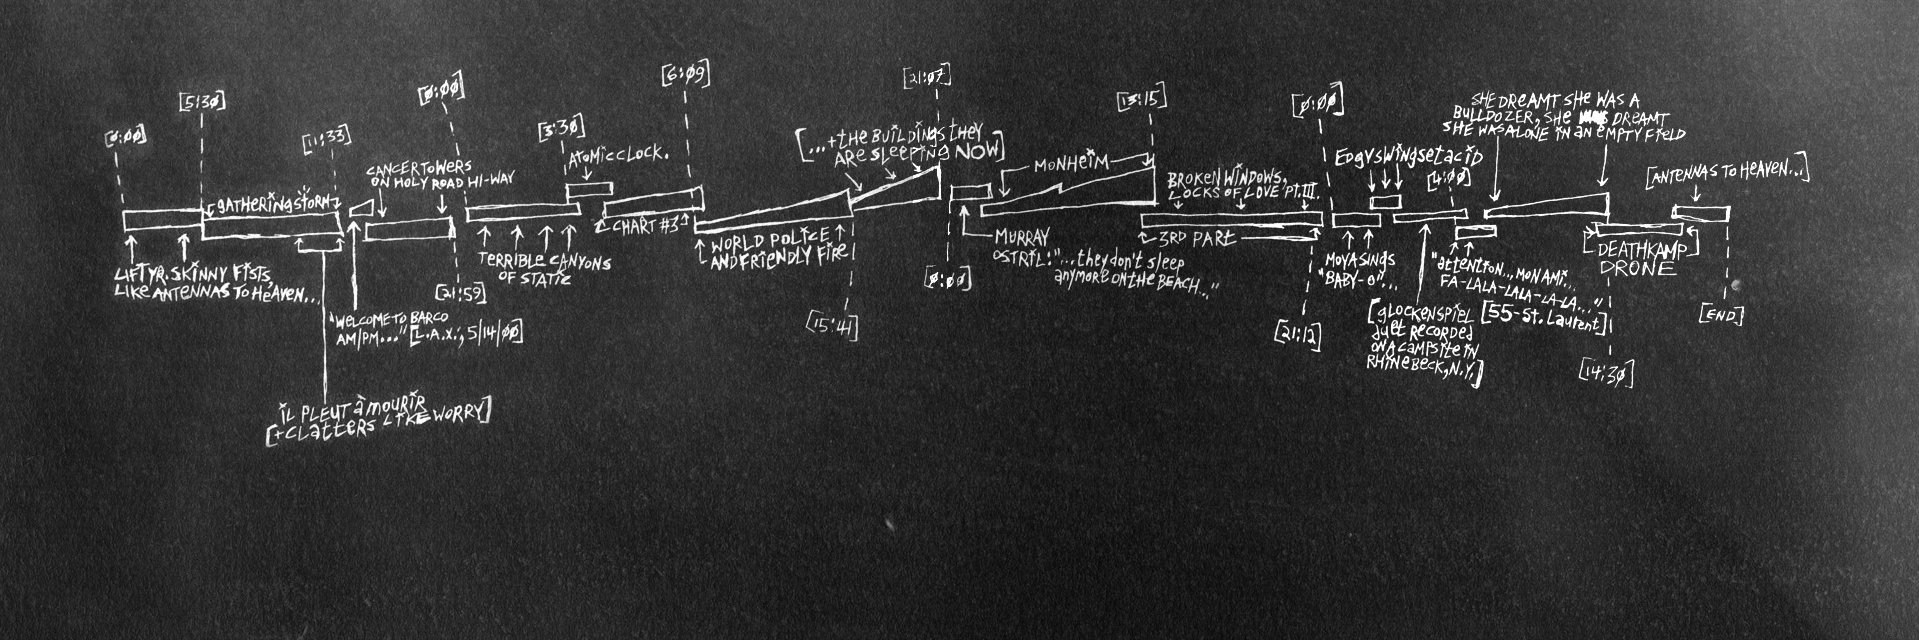 [0:00]
[5:30]
[11:33]
LIFT YR. SKINNY FISTS,
LIKE ANTENNAS TO HEAVEN...
GATHERING STORM
IL PLEUT À MOURIR
[+CLATTERS LIKE WORRY]
"WELCOME TO BARCO
AM/PM..." [L.A.X., 5/14/00]
CANCER TOWERS
ON HOLY ROAD HI-WAY
[21:59]
[0:00]
[3:30]
[6:09]
TERRIBLE CANYONS
OF STATIC
ATOMIC CLOCK.
CHART #3
WORLD POLICE
AND FRIENDLY FIRE
[15:41]
[...+THE BUILDINGS THEY
ARE SLEEPING NOW]
[21:07]
[0:00]
MURRAY
OSTRIL: "...they don't sleep
anymore on the beach..."
MONHEIM
[13:15]
BROKEN WINDOWS,
LOCKS OF LOVE PT.III.
3RD PART
[21:12]
[0:00]
MOYA SINGS
"BABY-O"...
EDGYSWINGSETACID
[4:00]
[GLOCKENSPIEL
DUET RECORDED
ON A CAMPSITE IN
RHINEBECK, N.Y.]
"attention... MON AMI...
FA-LALA-LALA-LA-LA..."
[55-St. Laurent]
SHE DREAMT SHE WAS A
BULLDOZER, SHE DREAMT
SHE WAS ALONE IN AN EMPTY FIELD
[14:30]
DEATHKAMP
DRONE
[ANTENNAS TO HEAVEN...]
[END]